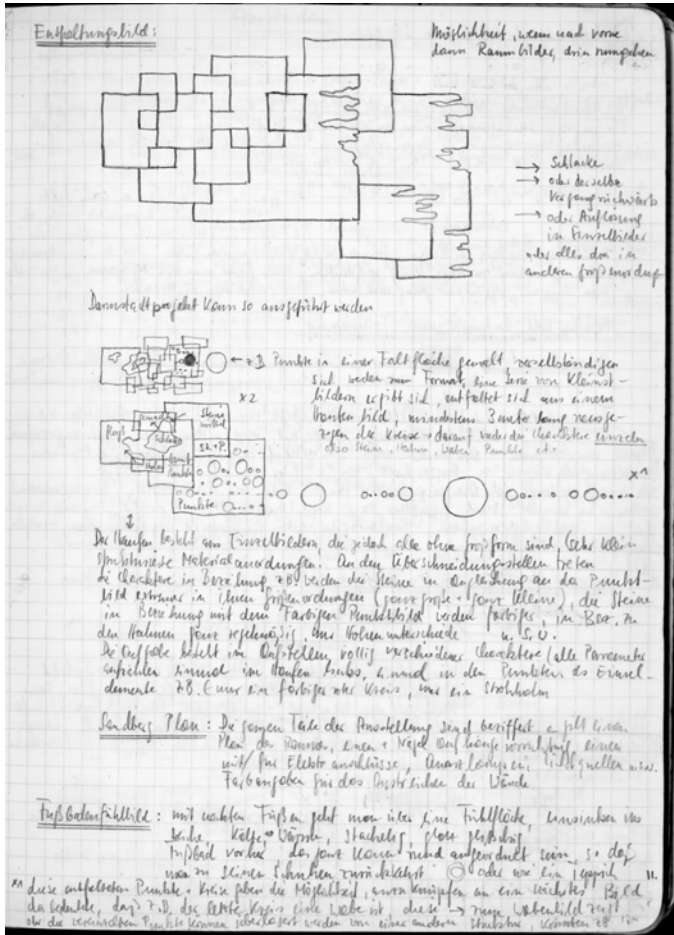 Entfaltungsbild:
Möglichkeit, wenn nach vorne
dann Raumbilder, drin rumgehen
→ Schlacke
→ oder derselbe
Vorgang rückwärts
→ oder Auflösung
in Einzelbilder
oder alles das in
anderen Größenordng
Darmstadtprojekt kann so ausgeführt werden
← z.B. Punkte in einer Faltfläche gemalt, verselbständigen
sich, werden zum Format, eine Serie von Kleinst-
bildern ergibt sich, entfaltet sich aus einem
bild, mindestens 3 meter lang rausge-
zogen die Kreise + darauf wieder die Charaktere einzeln
also Steine, Halme, Waben, Punkte etc.
x2
Steine
fluß
St. + P.
Punkte
x^
Der Haufen besteht aus Einzelbildern, die jedoch alle ohne Großform sind, (sehr klein
strukturierte Materialanordnungen. An den Überschneidungsstellen treten
die Charaktere in Beziehung z.B. werden die Steine in Angleichung an das Punkt-
bild extremer in ihren Größenordnungen (ganz große + ganz kleine), die Steine
in Beziehung mit dem Farbigen Punktbild werden farbiger, in Bez. zu
den Halmen ganz regelmäßig, nur Höhenunterschiede u. s. w.
Die Aufgabe besteht im Aufstellen völlig verschiedener Charaktere (alle Parameter
einmal im Haufen, einmal in den Punkten als Einzel-
elemente z.B. (nur ein farbiger roter Kreis, nur ein Strohhalm
Sandberg Plan: Die ganzen Teile der Ausstellung sind beziffert es gibt einen
Plan des Raumes, einen + Nagel Aufhängevorrichtung, einen
mit/für Elektroanschlüsse, Quarzlampen, Lichtquellen u.s.w.
Farbangaben für das Anstreichen der Wände.
Fußbodenfühlbild: mit nackten Füßen geht man über eine Fühlfläche, einsinken ins
Weiche, Kälte, Wärme, Stachelig, glatt
Fußbad vorher, das ganz kann rund angeordnet sein, so daß
man zu seinen Schuhen zurückkehrt oder wie ein Teppich
x^ diese entfalteten Punkte + Kreise geben die Möglichkeit, anzuknüpfen an ein nächstes Bild
das bedeutet, daß z.B. der letzte Kreis eine Wabe ist, diese → neues Wabenbild
oder die vereinzelten Punkte können überlagert werden von einer anderen Struktur